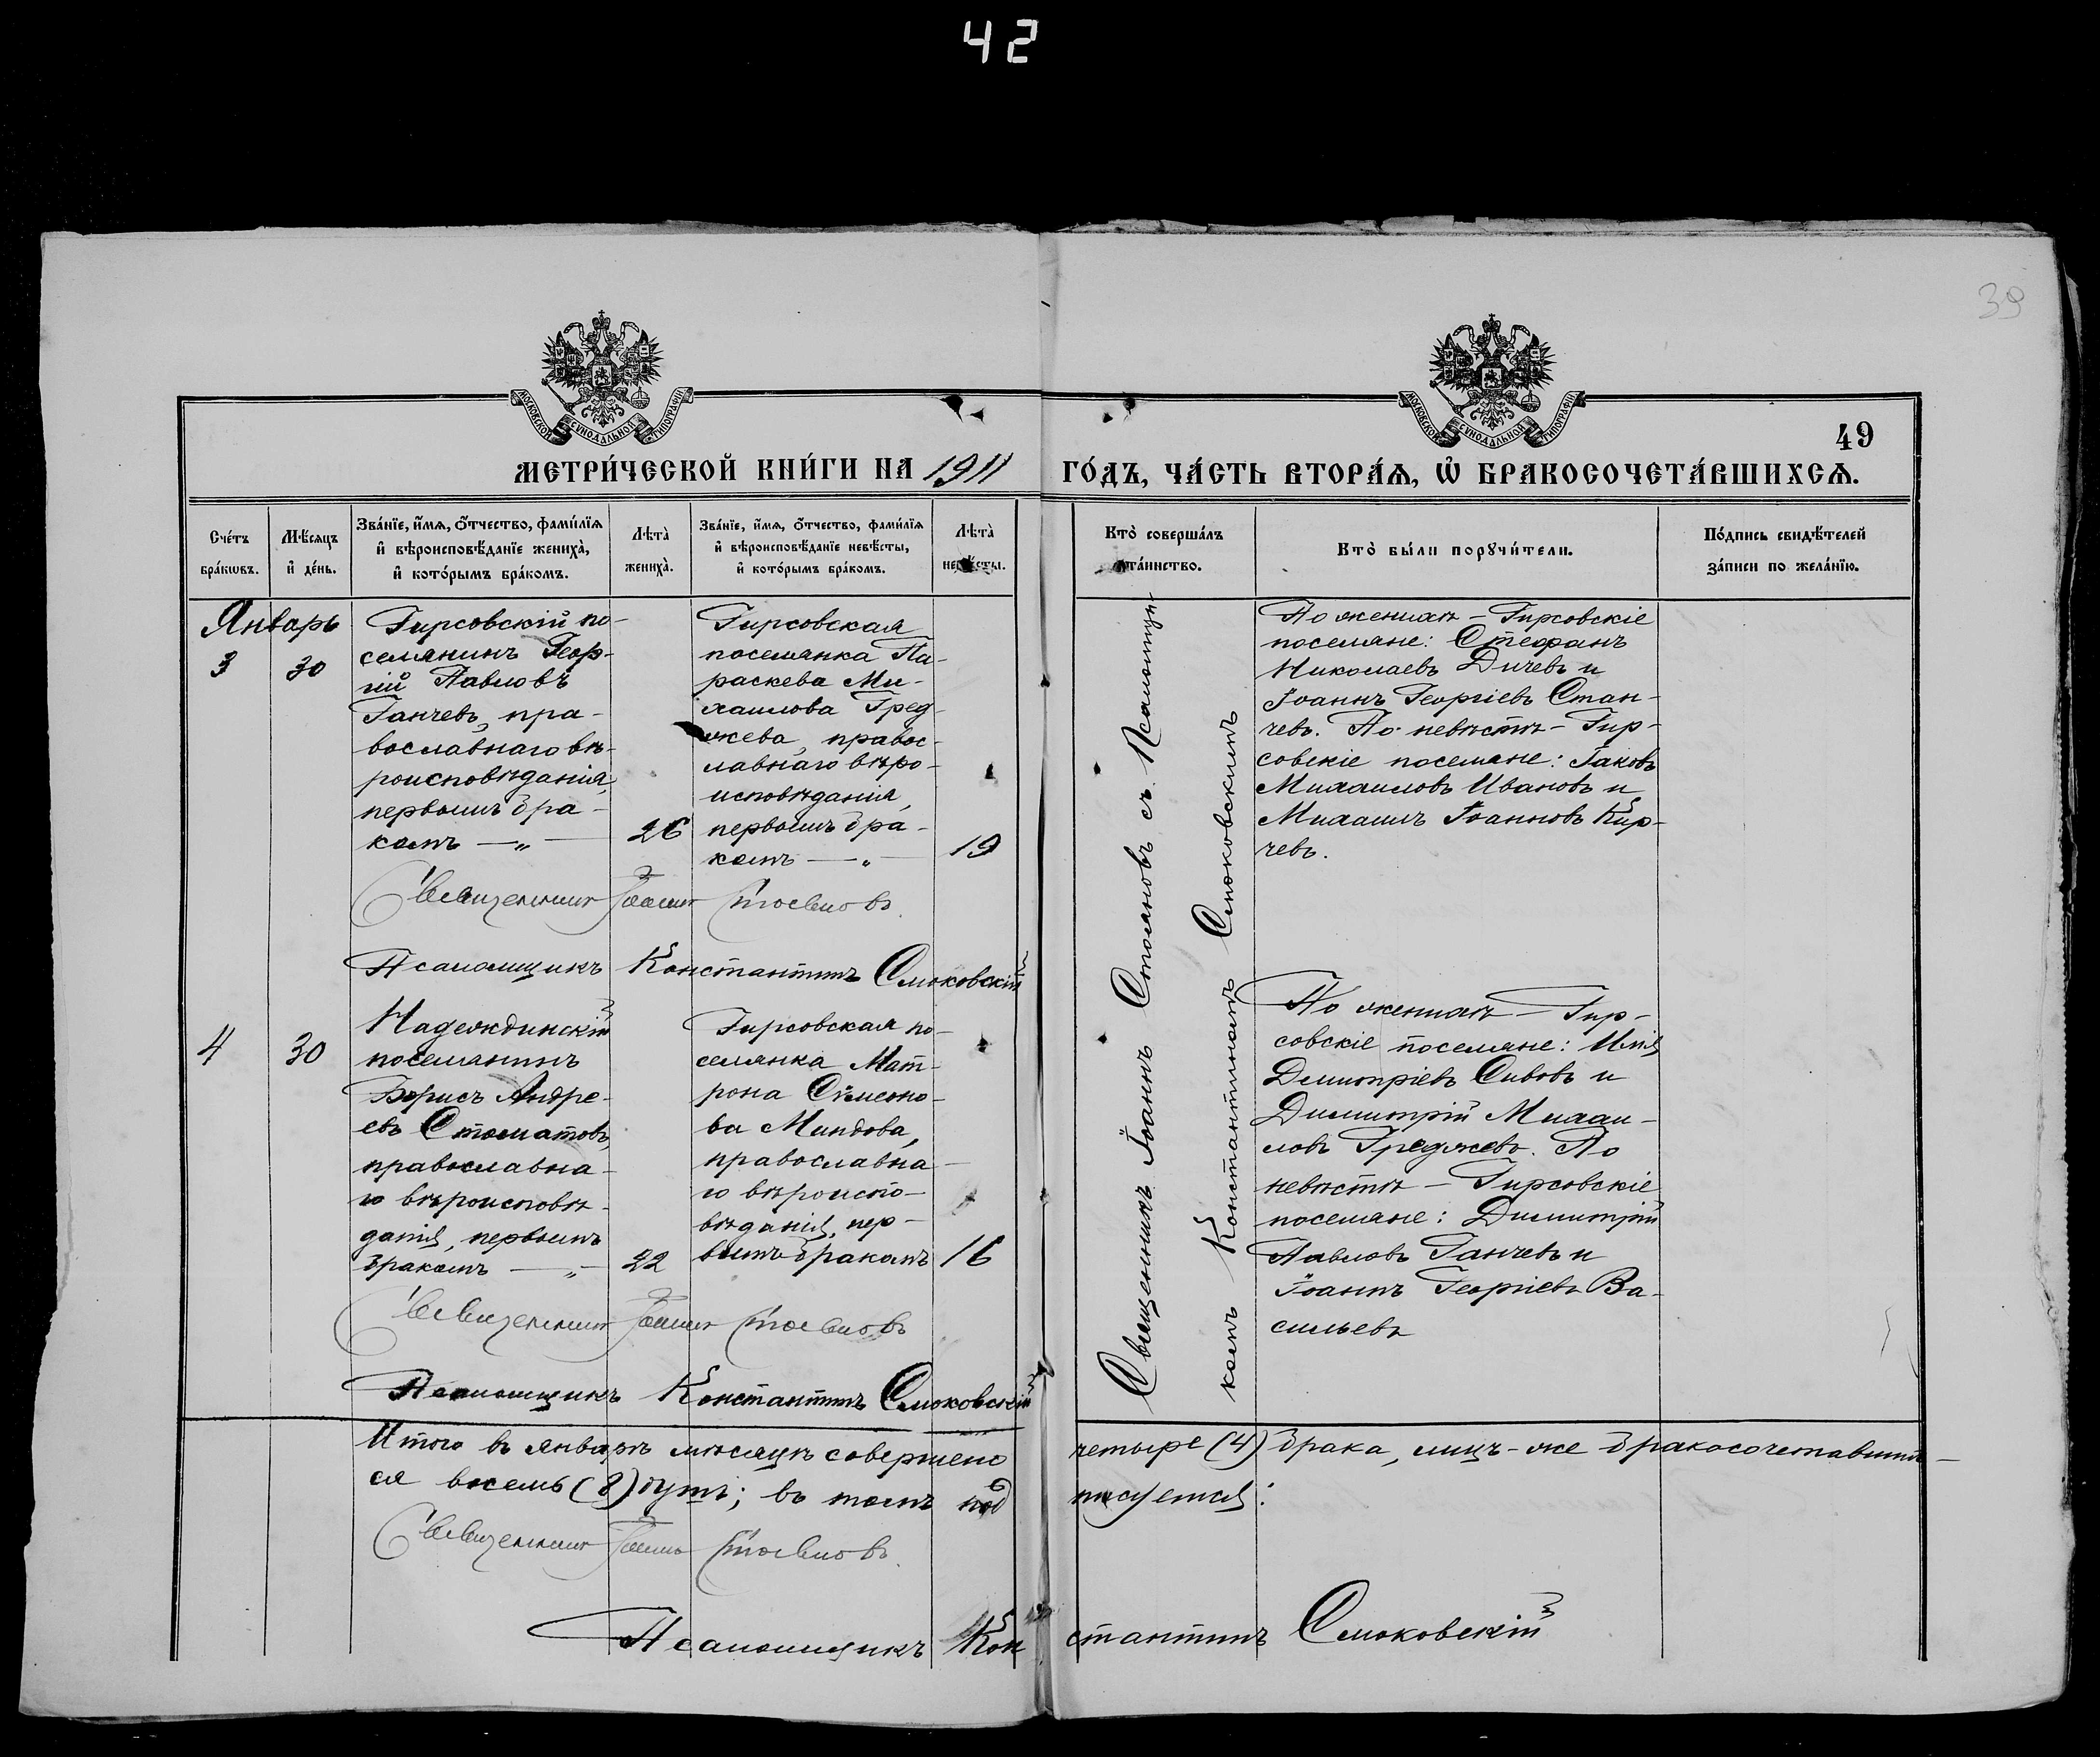 42
39
МОСКОВСКОЙ СѴНОДАЛЬНОЙ ТИПОГРАФІИ
МОСКОВСКОЙ СѴНОДАЛЬНОЙ ТИПОГРАФІИ
49
МЕТРИ́ЧЕСКОЙ КНИ́ГИ НА 1911
ГО́ДЪ, ЧА́СТЬ ВТОРА́Ѧ, Ѡ҆ БРАКОСОЧЕТА́ВШИХСѦ.
Сче́тъ
бра́кѡвъ.
Мѣ́сѧцъ
и҆ де́нь.
Зва́нїе, и҆́мѧ, ѻ҆́тчество, фами́лїѧ
и҆ вѣроисповѣ́данїе жениха̀,
и҆ кото́рымъ бра́комъ.
Лѣта̀
жениха̀.
Зва́нїе, и҆́мѧ, ѻ҆́тчество, фами́лїѧ
и҆ вѣроисповѣ́данїе невѣ́сты,
и҆ кото́рымъ бра́комъ.
Лѣта̀
невѣ́сты.
Кто̀ соверша́лъ
та́инство.
Кто̀ бы́ли порꙋчи́тели.
По́дпись свидѣ́телей
за́писи по жела́нїю.
Январь
3
30
Гирсовскій по-
селянинъ Геор-
гій Павловъ
Ганчевъ, пра-
вославнаго вѣ-
роисповѣданія,
первымъ бра-
комъ —„—
26
Гирсовская
поселянка Па-
раскева Ми-
хаилова Гред-
жева, правос-
лавнаго вѣро-
исповѣданія,
первымъ бра-
комъ —„—
19
Священникъ Іоаннъ Стояновъ съ Псаломщи-
комъ Константиномъ Смоковскимъ
По женихѣ – Гирсовскіе
поселяне: Стефанъ
Николаевъ Дичевъ и
Іоаннъ Георгіевъ Стан-
чевъ. По невѣстѣ – Гир-
совскіе поселяне: Іаковъ
Михаиловъ Ивановъ и
Михаилъ Іоанновъ Кир-
чевъ.
Священникъ Іоаннъ Стояновъ
Псаломщикъ Константинъ Смоковскій
4
30
Надеждинскій
поселянинъ
Борисъ Андре-
евъ Стоматовъ,
православна-
го вѣроисповѣ-
данія, первымъ
бракомъ —„—
22
Гирсовская по-
селянка Мат-
рона Симеоно-
ва Миндова,
православна-
го вѣроиспо-
вѣданія, пер-
вымъ бракомъ
16
По женихѣ – Гир-
совскіе поселяне: Илія
Димитріевъ Сивовъ и
Димитрій Михаи-
ловъ Греджевъ. По
невѣстѣ – Гирсовскіе
поселяне: Димитрій
Павловъ Ганчевъ и
Іоаннъ Георгіевъ Ва-
сильевъ
Священникъ Іоаннъ Стояновъ
Псаломщикъ Константинъ Смоковскій
Итого въ январѣ мѣсяцѣ совершено четыре (4) брака, лицъ-же бракосочетавших-
ся восемь (8) душъ; въ томъ и подписуемся:
Священникъ Іоаннъ Стояновъ
Псаломщикъ Константинъ Смоковскій